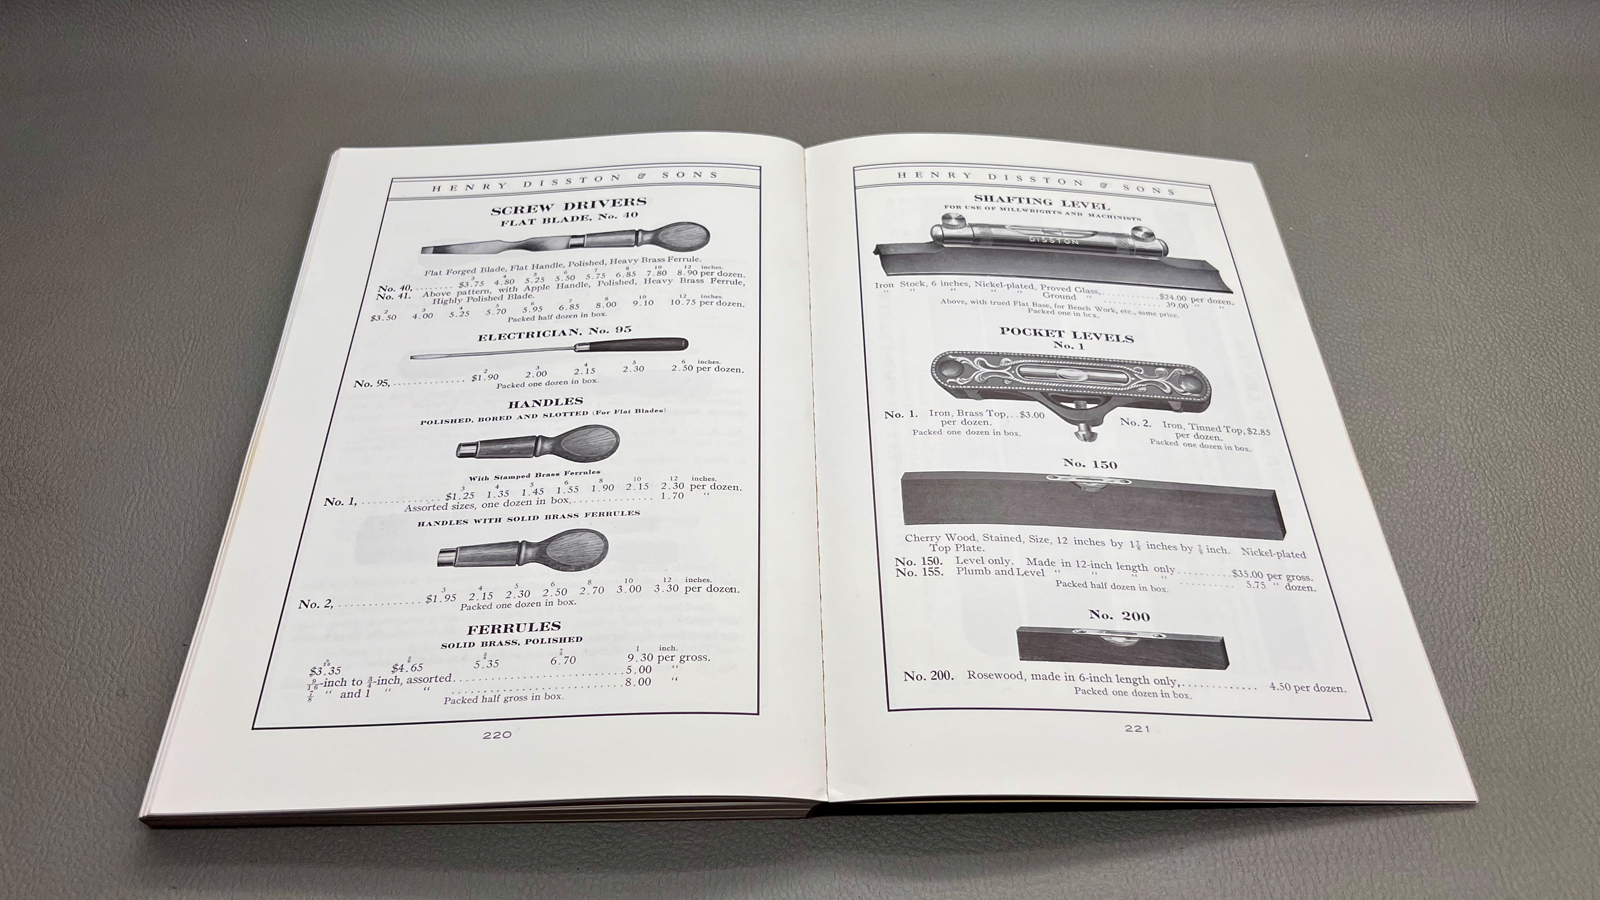 HENRY DISSTON & SONS
SCREW DRIVERS
FLAT BLADE, No. 40
Flat Forged Blade, Flat Handle, Polished, Heavy Brass Ferrule.
3 4 5 6 7 8 10 12 inches.
No. 40, ........ $3.75 4.80 5.25 5.50 5.75 6.85 7.80 8.90 per dozen.
No. 41. Above pattern, with Apple Handle, Polished, Heavy Brass Ferrule,
Highly Polished Blade.
2 3 4 5 6 7 8 10 12 inches.
$3.50 4.00 5.25 5.70 5.95 6.85 8.00 9.10 10.75 per dozen.
Packed half dozen in box.
ELECTRICIAN, No. 95
2 3 4 5 6 inches.
No. 95, ............ $1.90 2.00 2.15 2.30 2.50 per dozen.
Packed one dozen in box.
HANDLES
POLISHED, BORED AND SLOTTED (For Flat Blades)
With Stamped Brass Ferrules
3 4 5 6 8 10 12 inches.
No. 1, ............ $1.25 1.35 1.45 1.55 1.90 2.15 2.30 per dozen.
Assorted sizes, one dozen in box, ............ 1.70 "
HANDLES WITH SOLID BRASS FERRULES
3 4 5 6 8 10 12 inches.
No. 2, ............ $1.95 2.15 2.30 2.50 2.70 3.00 3.30 per dozen.
Packed one dozen in box.
FERRULES
SOLID BRASS, POLISHED
1 inch.
$3.35 $4.65 5.35 6.70 9.30 per gross.
9/16-inch to 3/4-inch, assorted ............ 5.00 "
7/8 " and 1 " " ............ 8.00 "
Packed half gross in box.
220
HENRY DISSTON & SONS
SHAFTING LEVEL
FOR USE OF MILLWRIGHTS AND MACHINISTS
DISSTON
Iron Stock, 6 inches, Nickel-plated, Proved Glass, ............ $24.00 per dozen.
" " " " " Ground " ............ 39.00 " "
Above, with trued Flat Base, for Bench Work, etc., same price.
Packed one in box.
POCKET LEVELS
No. 1
No. 1. Iron, Brass Top, .. $3.00
per dozen.
Packed one dozen in box.
No. 2. Iron, Tinned Top, $2.85
per dozen.
Packed one dozen in box.
No. 150
Cherry Wood, Stained, Size, 12 inches by 1⅞ inches by ⅞ inch. Nickel-plated
Top Plate.
No. 150. Level only. Made in 12-inch length only ............ $35.00 per gross.
No. 155. Plumb and Level " " " " ............ 5.75 " dozen.
Packed half dozen in box.
No. 200
No. 200. Rosewood, made in 6-inch length only, ............ 4.50 per dozen.
Packed one dozen in box.
221